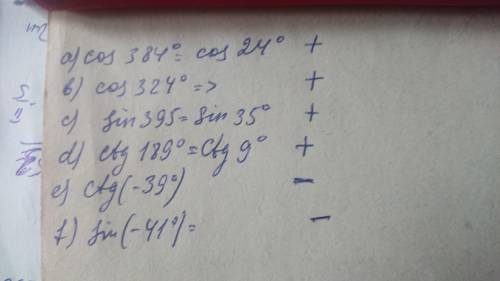 a) cos 384° = cos 24° +
b) cos 324° => +
c) sin 395 = sin 35° +
d) ctg 189° = ctg 9° +
e) ctg (-39°) -
f) sin (-41°) = -